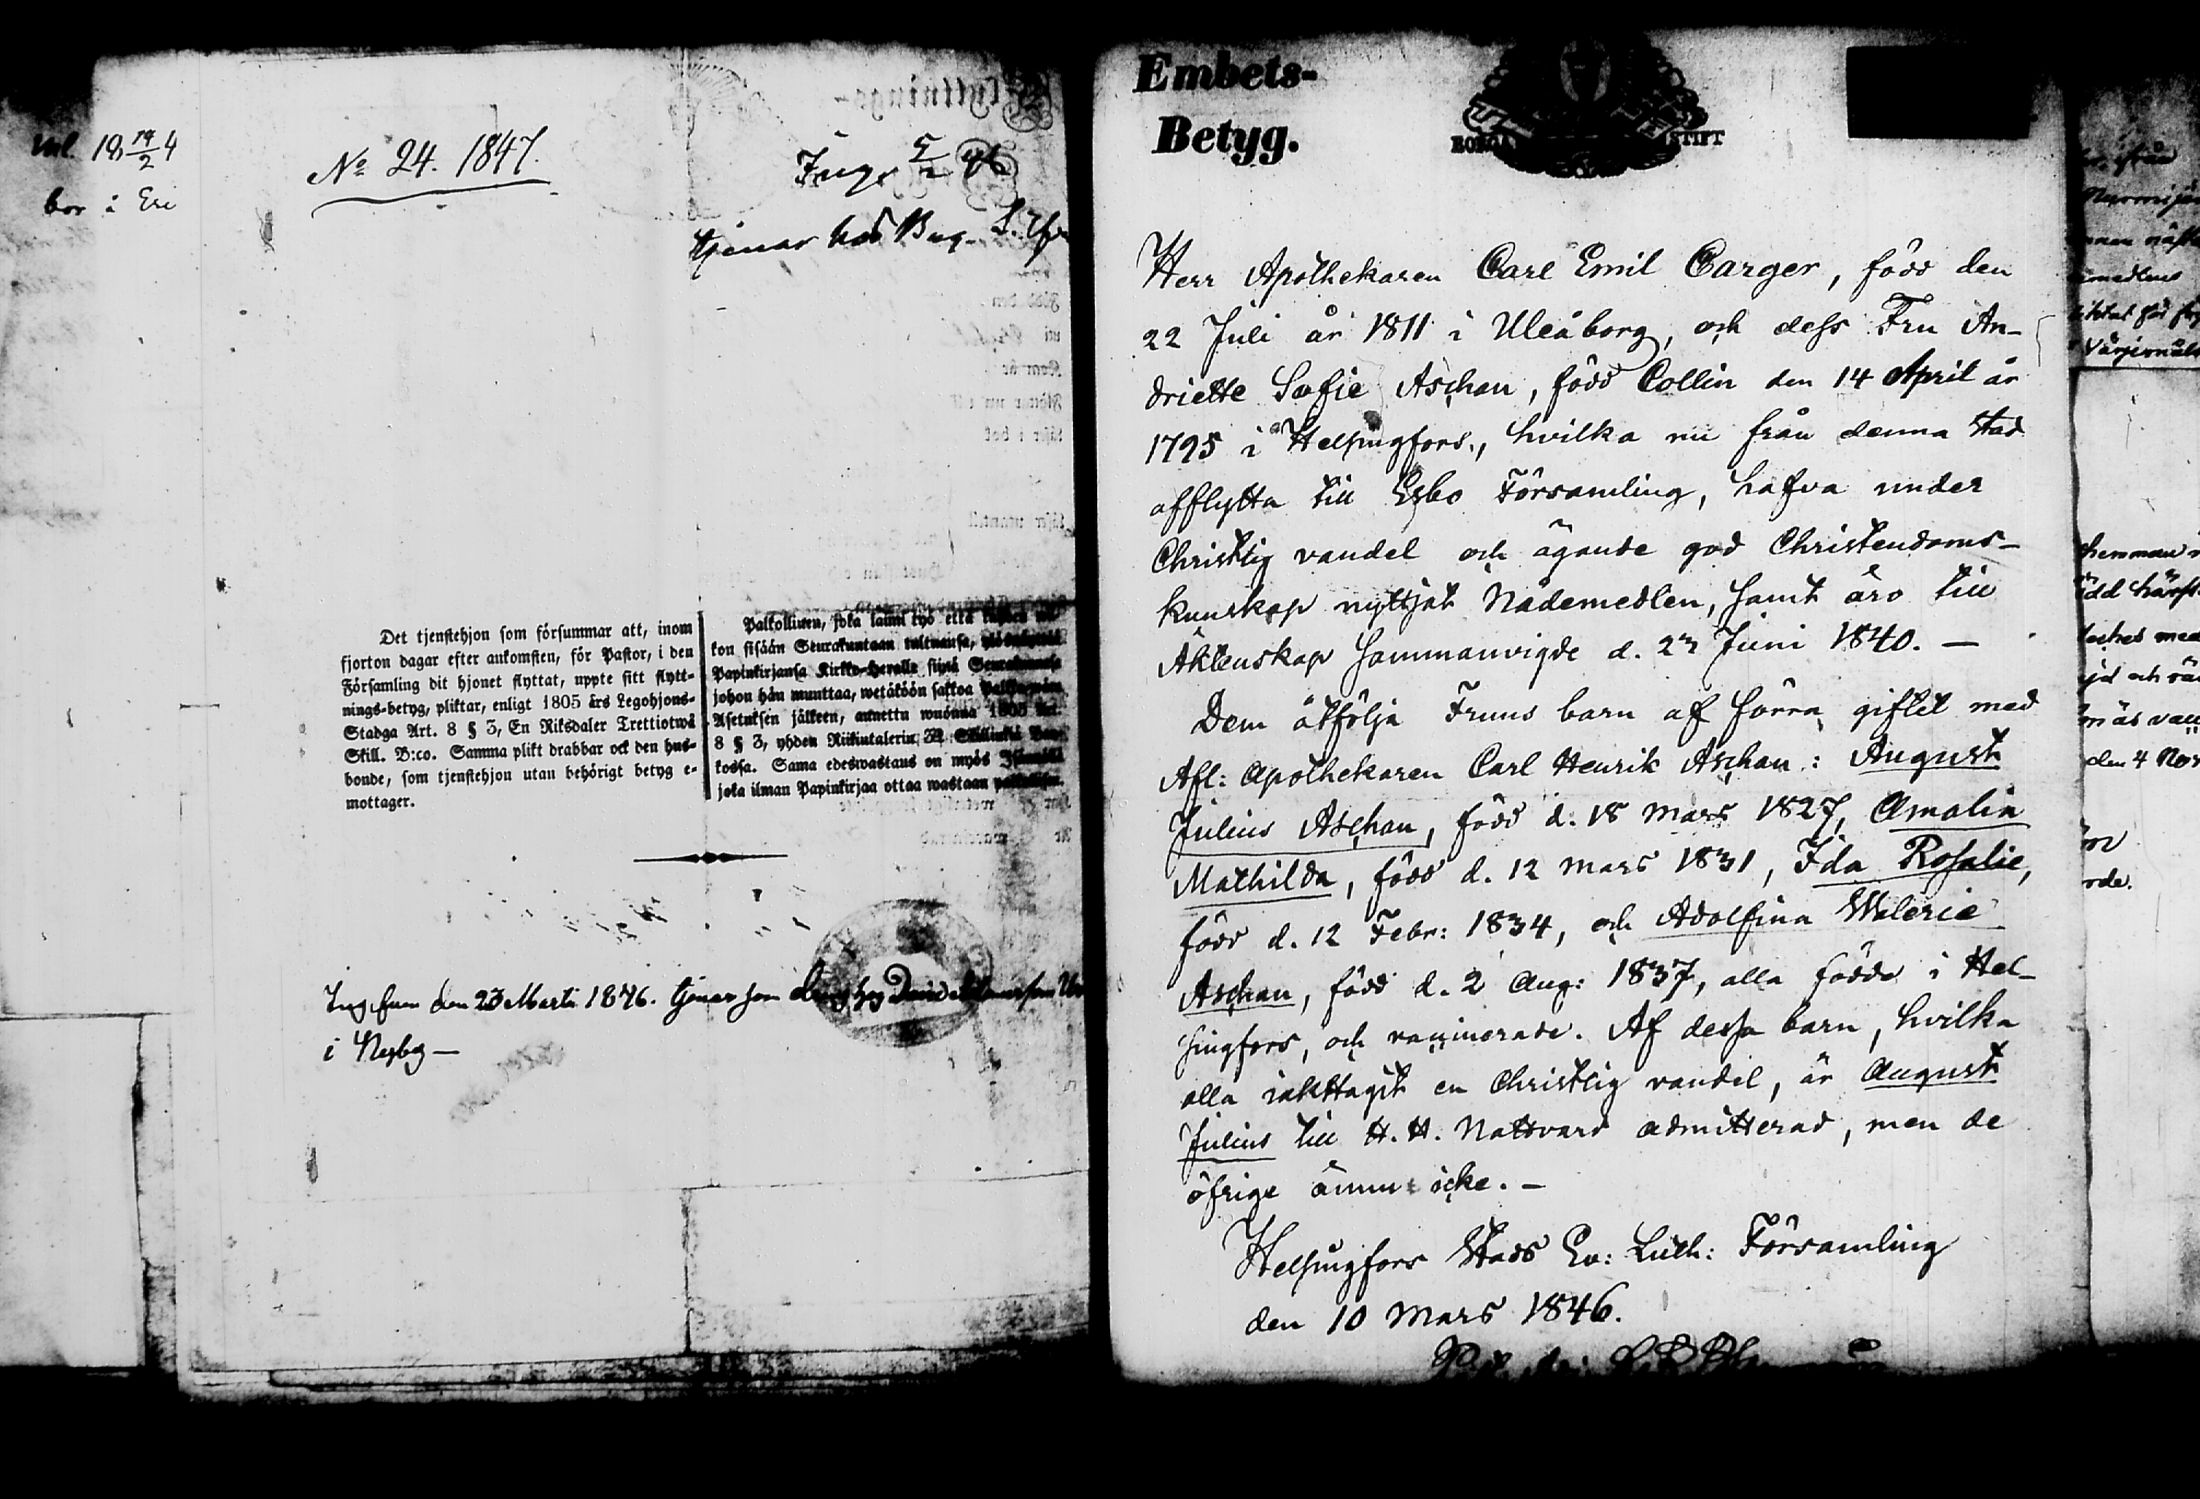 inl. 18 19/2 4
bor i Eri
No 24. 1847.
tjenar hos
Det tjenstehjon som försummar att, inom
fjorton dagar efter ankomsten, för Pastor, i den
Församling dit hjonet flyttat, uppte sitt flytt-
nings-betyg, pliktar, enligt 1805 års Legohjons-
Stadga Art. 8 § 3, En Riksdaler Trettiotwå
Skill. B:co. Samma plikt drabbar ock den hus-
bonde, som tjenstehjon utan behörigt betyg e-
mottager.
Palkollinen, joka laimi lyö että
kon sisään Seurakuntaan tultuansa,
Papinkirjansa Kirkko-Herralle siinä Seurakunnassa
johon hän muuttaa, wetäköön sakkoa
Asetuksen jälkeen, annettu wuonna 1805
8 § 3, yhden Riikintalerin 32 Skillinkiä Ban-
kossa. Sama edeswastaus on myös Isännällä
joka ilman Papinkirjaa ottaa wastaan
den 23 Martii 1846. tjenar som dreng hos
i Nyby —
Embets-
Betyg.
BORGÅ STIFT
Herr Apothekaren Carl Emil Carger, född den
22 Juli år 1811 i Uleåborg, och dess Fru An-
driette Sofie Aschan, född Collin den 14 April år
1795 i Helsingfors, hvilka nu från denna Stad
afflytta till Esbo Församling, hafva under
Christlig vandel och ägande god Christendoms-
kunskap nyttjat Nådemedlen, samt äro till
Äktenskap sammanvigde d. 23 Juni 1840. —
Dem åtfölja Fruns barn af förra giftet med
Afl: Apothekaren Carl Henrik Aschan: August
Julius Aschan, född d. 18 Mars 1827, Amalia
Mathilda, född d. 12 Mars 1831, Ida Rosalie,
född d. 12 Febr: 1834, och Adolfina Walerie
Aschan, född d. 2 Aug: 1837, alla födde i Hel-
singfors, och vaccinerade. Af dessa barn, hvilka
alla iakttagit en Christlig vandel, är August
Julius till H. H. Nattvard admitterad, men de
öfrige ännu icke. —
Helsingfors Stads Ev: Luth: Församling
den 10 Mars 1846.
hemman
den 4 Nov